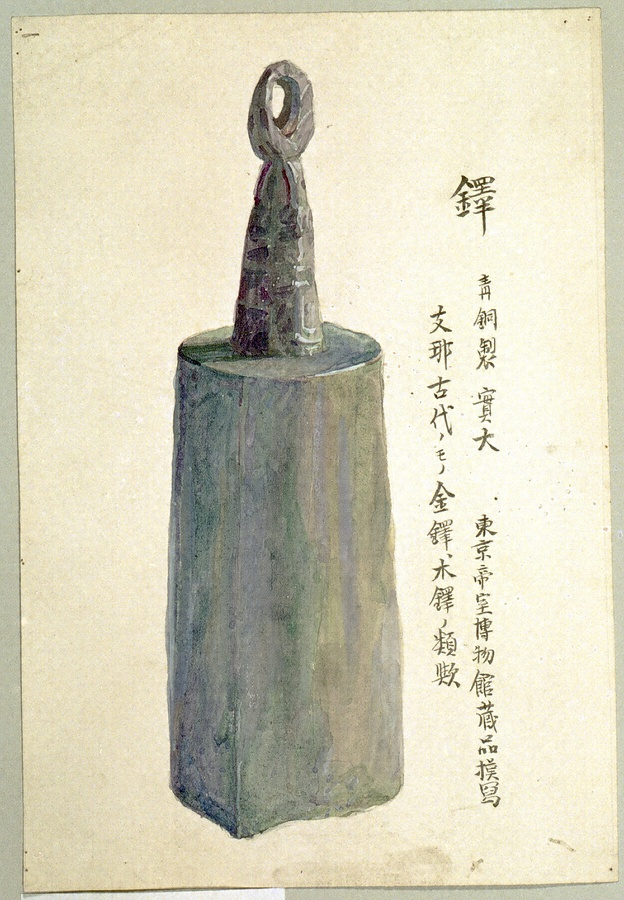 鐸
青銅製 實大 東京帝室博物館蔵品摸寫
支那古代ノモノ金鐸、木鐸ノ類歟